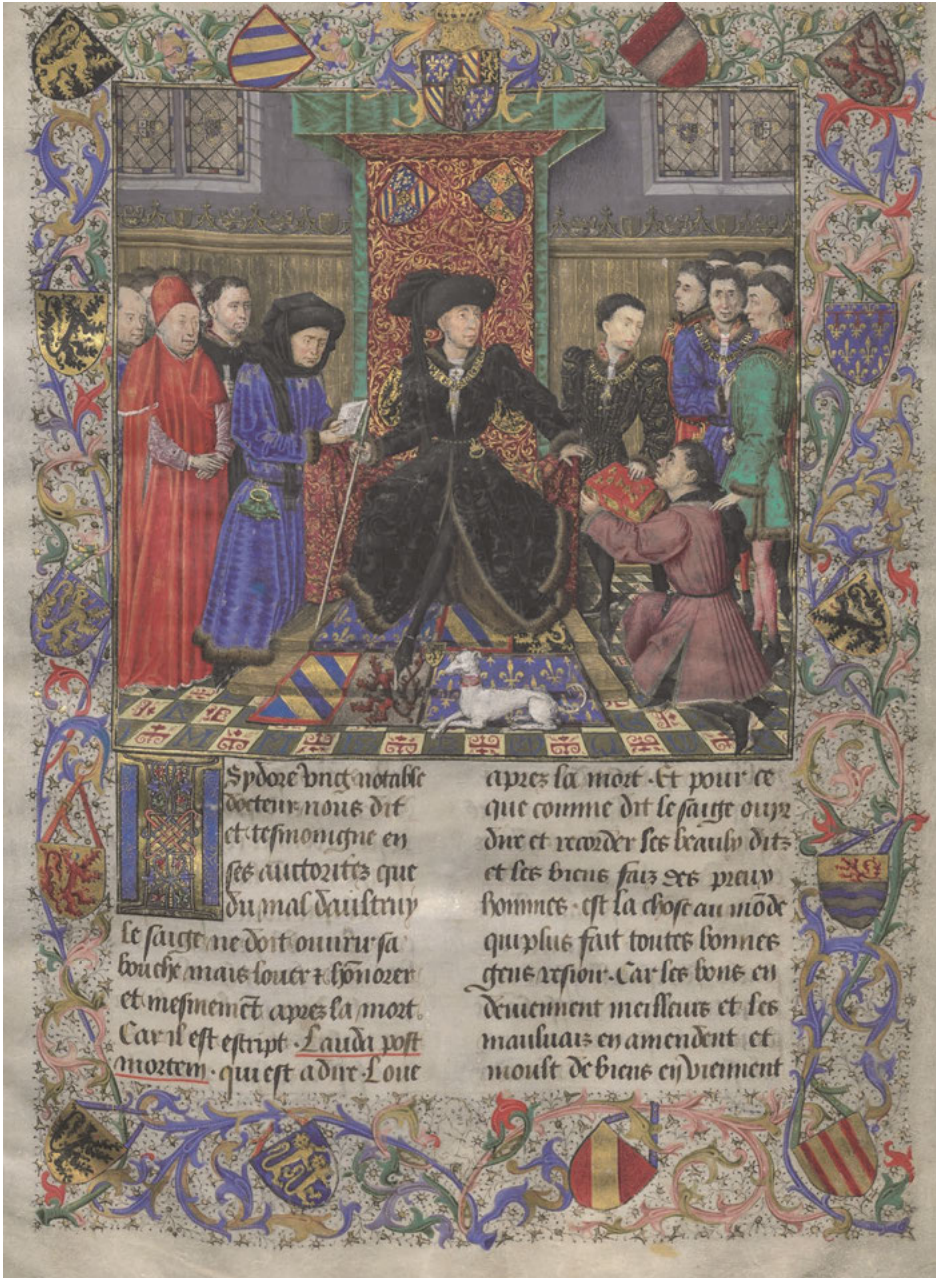 Isydore vng notable
docteur nous dit
et tesmoingne en
ses auctoritez que
du mal daultruy
le saige ne doit ouurir sa
bouche mais louer ⁊ hōnorer
et mesmemēt apres la mort.
Car il est escript. Lauda post
mortem. qui est a dire. Loue
apres la mort. Et pour ce
que comme dit le saige ouyr
dire et recorder les beaulx ditz
et les biens faiz des preux
hommes. est la chose au mōde
qui plus fait toutes bonnes
gens resioir. Car les bons en
deuiennent meilleurs et les
mauluaiz en amendent et
moult de biens en viennent